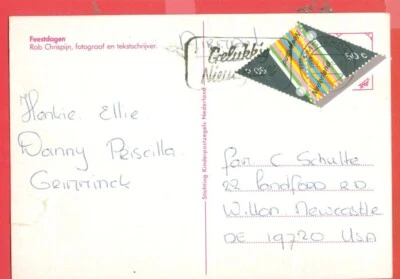 Feestdagen
Rob Chrispijn, fotograaf en tekstschrijver.
Gelukkig
Nieuw
50 c
Stichting Kinderpostzegels Nederland
Honkie Ellie
Danny Priscilla
Geinninck
Fam C Schulte
22 Landford RD
Wilton Newcastle
DE 19720 USA